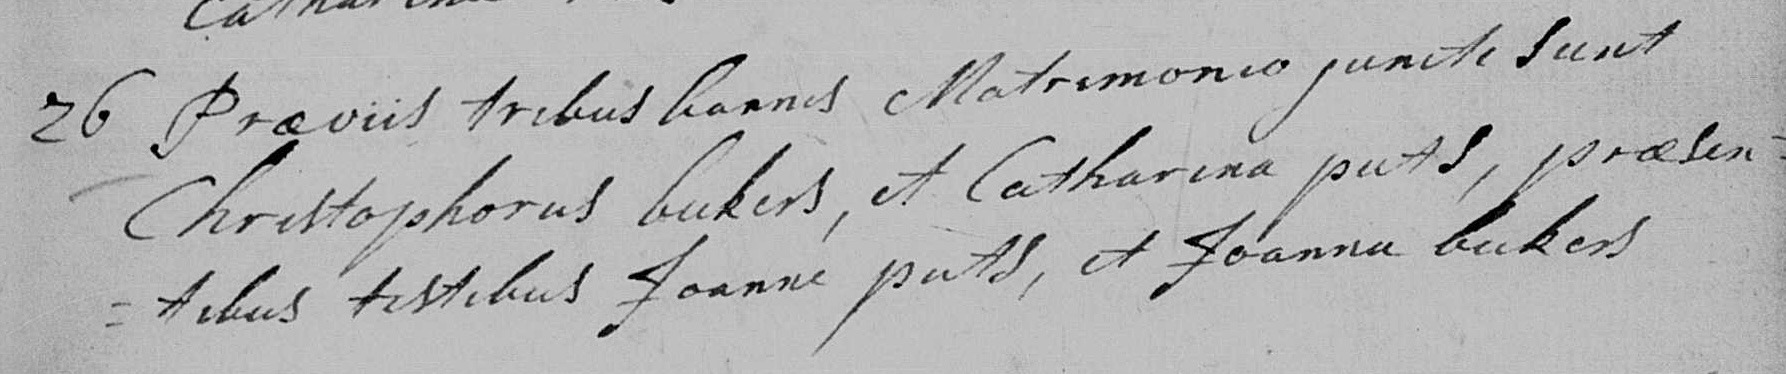 26 Præviis tribus bannis Matrimonio juncti sunt
Christophorus bukers, et Catharina puts, præsen=
=tibus testibus Joanne puts, et Joanna bukers